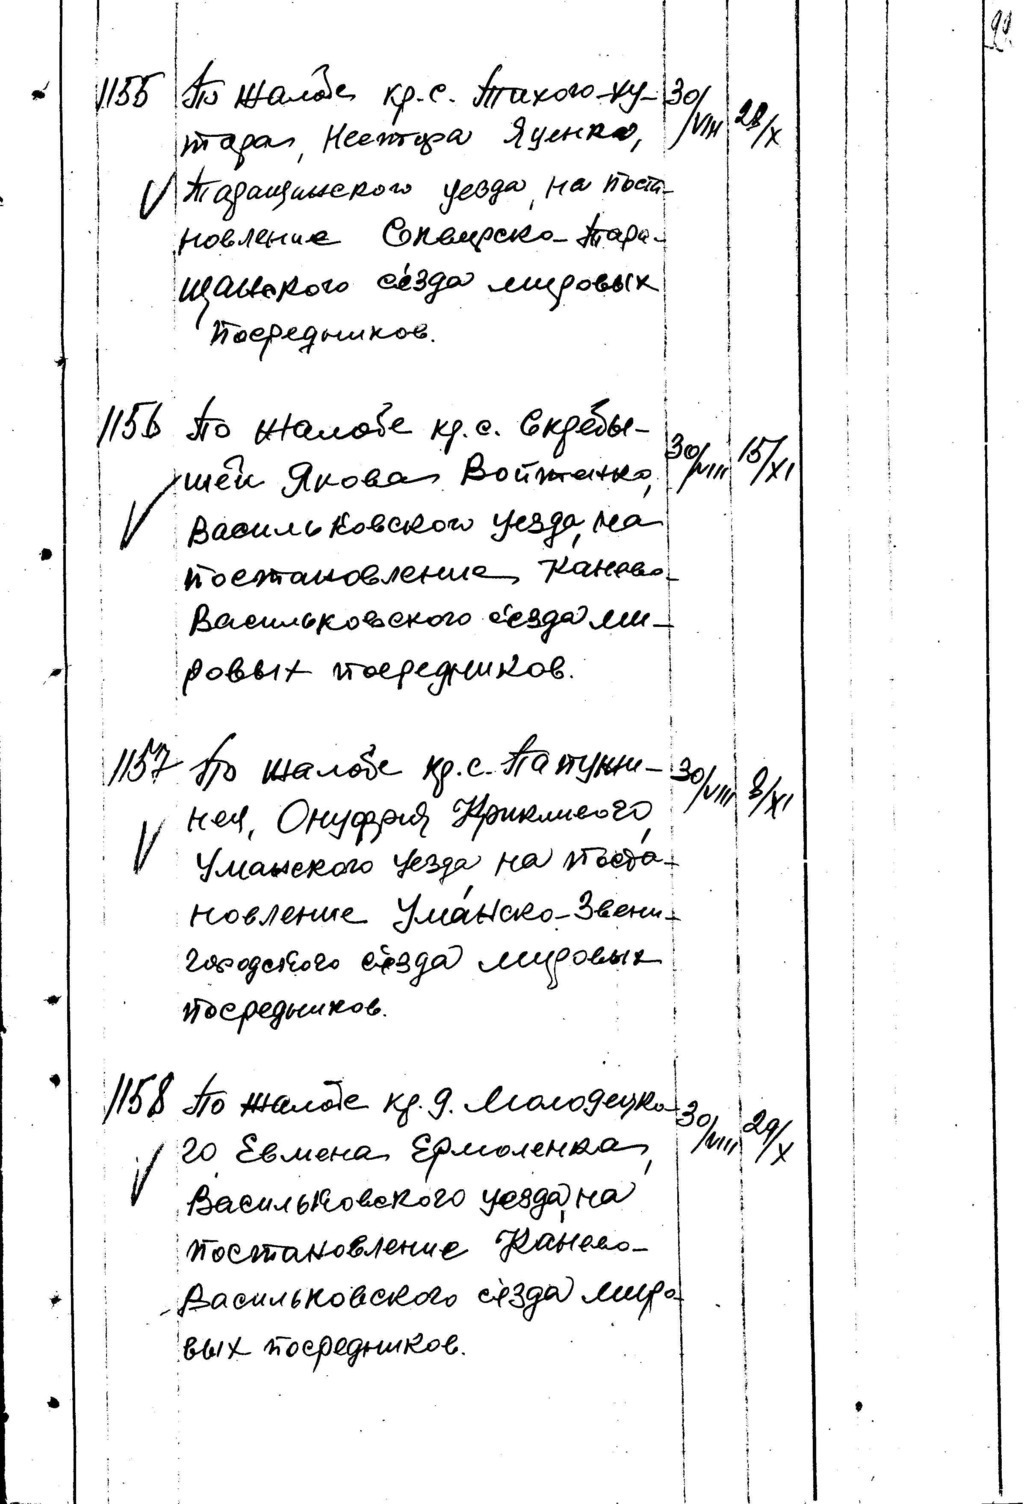 99
1155 По жалобе кр. с. Тихого-ху- 30/VIII 28/X
тора, Нестора Яценко,
Таращанского уезда, на поста-
новление Сквирско-Тара-
щанского с'езда мировых
посредников.
1156 По жалобе кр. с. Скребы- 30/VIII 15/XI
шек Якова Войтенко,
Васильковского уезда, на
постановление Канево-
Васильковского с'езда ми-
ровых посредников.
1157 По жалобе кр. с. 30/VIII 8/XI
Онуфрия Крикливого,
Уманского уезда на поста-
новление Уманско-Звени-
городского с'езда мировых
посредников.
1158 По жалобе кр. д. Молодецко- 30/VIII 29/X
го Евмена Ермоленка,
Васильковского уезда, на
постановление Канево-
Васильковского с'езда миро-
вых посредников.